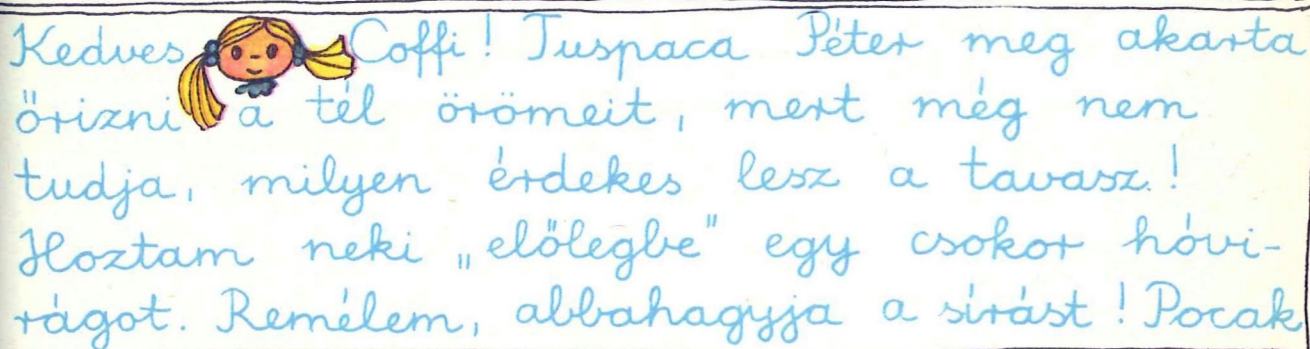 Kedves Coffi! Tuspaca Péter meg akarta
őrizni a tél örömeit, mert még nem
tudja, milyen érdekes lesz a tavasz!
Hoztam neki „előlegbe" egy csokor hóvi-
rágot. Remélem, abbahagyja a sírást! Pocak